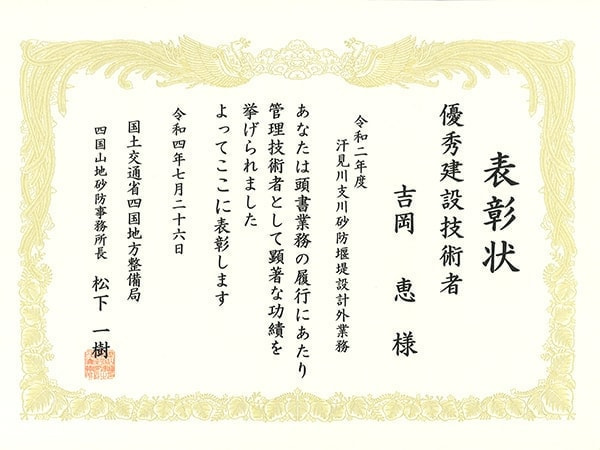 表彰状
優秀建設技術者
吉岡 恵 様
令和二年度
汗見川支川砂防堰堤設計外業務
あなたは頭書業務の履行にあたり
管理技術者として顕著な功績を
挙げられました
よってここに表彰します
令和四年七月二十六日
国土交通省四国地方整備局
四国山地砂防事務所長 松下 一樹